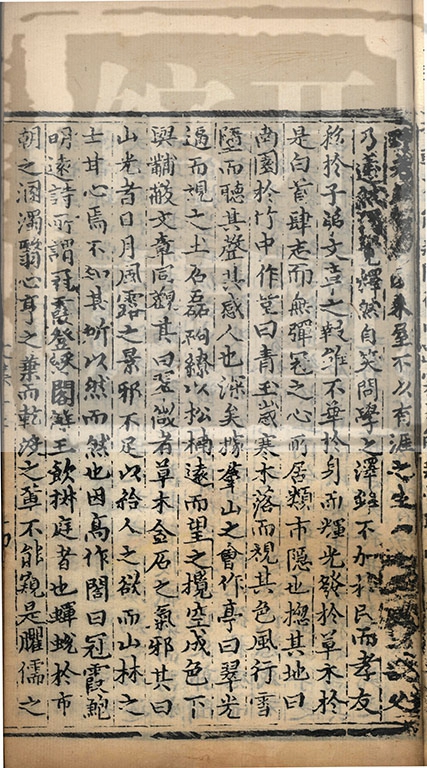 不以有涯之生
釋然自笑問學之澤雖不加於民而孝友
移於子弟文章之報雖不華於身而輝光發於草木於
是白首肆志而無彈冠之心所居類市隱也揔其地曰
南園於竹中作堂曰青玉歲寒木落而視其色風行雪
墮而聽其聲其感人也深矣據羣山之會作亭曰翠光
逼而視之土石磊砢繚以松楠遠而望之攬空成色下
與黼黻文章同觀其曰翠微者草木金石之氣邪其曰
山光者日月風露之景邪不足以給人之欲而山林之
士甘心焉不知其所以然而然也因高作閣曰冠霞鮑
明遠詩所謂冠霞登綵閣解玉飲椒庭者也蟬蛻於市
朝之溷濁翳心亨之葉而乾沒之輩不能窺是臞儒之